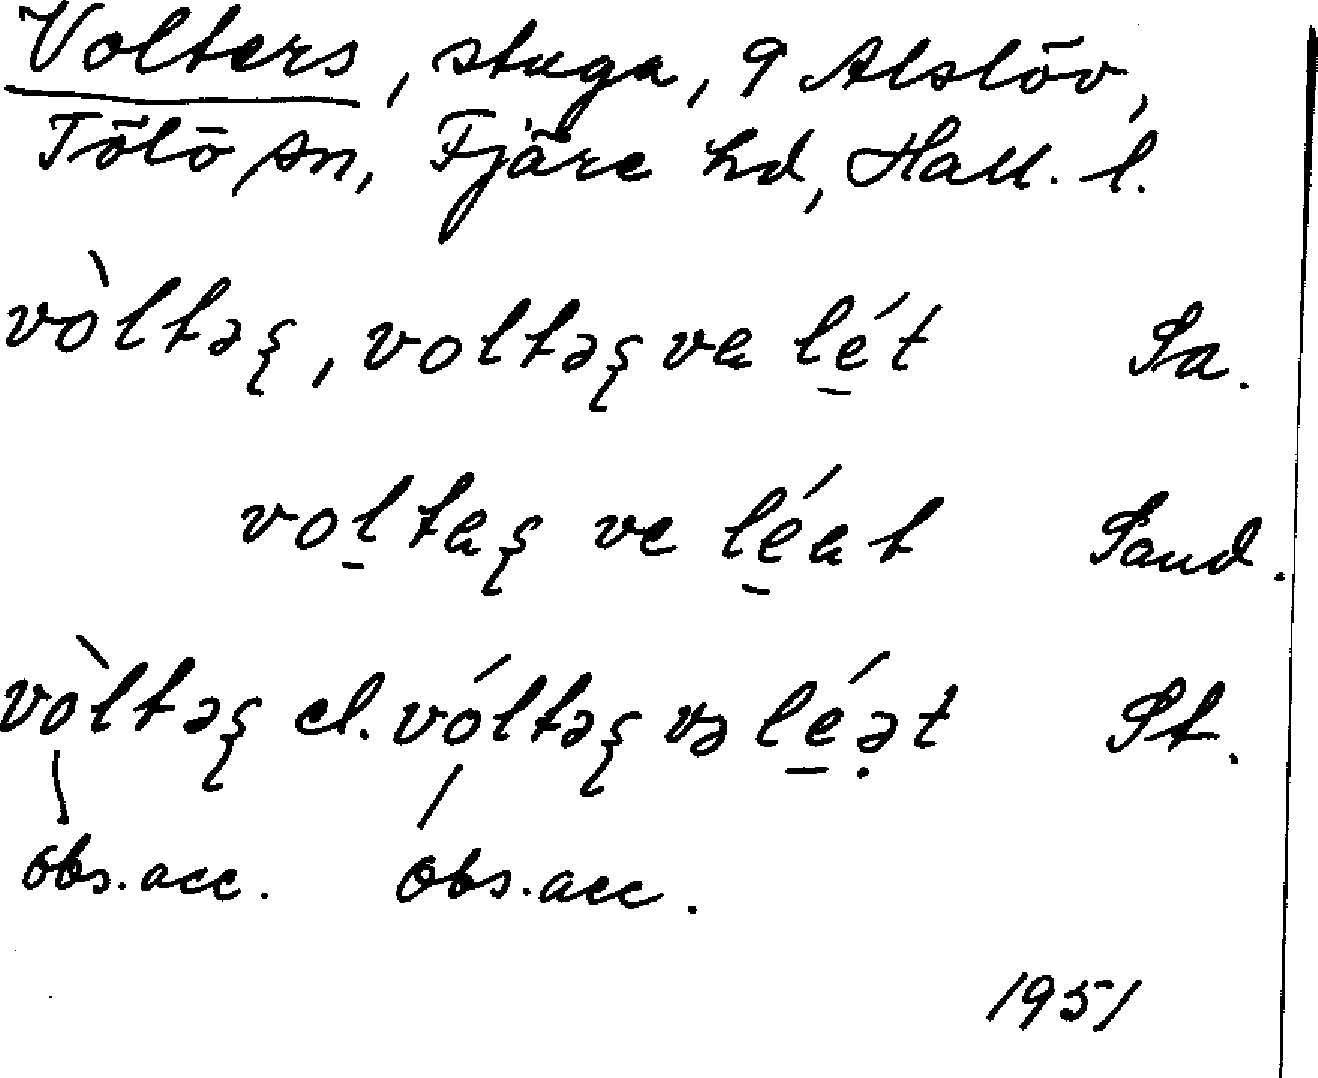 Volters, stuga, 9 Alslöv,
Tölö sn, Fjäre hd, Hall. l.
vòltəʂ, voltəʂ va lé̱t Sa.
voḻtaʂ ve lé̱at Sand.
vòltəʂ el. vóltəʂ və ḻé̱ə̣t St.
obs. acc. obs. acc.
1951